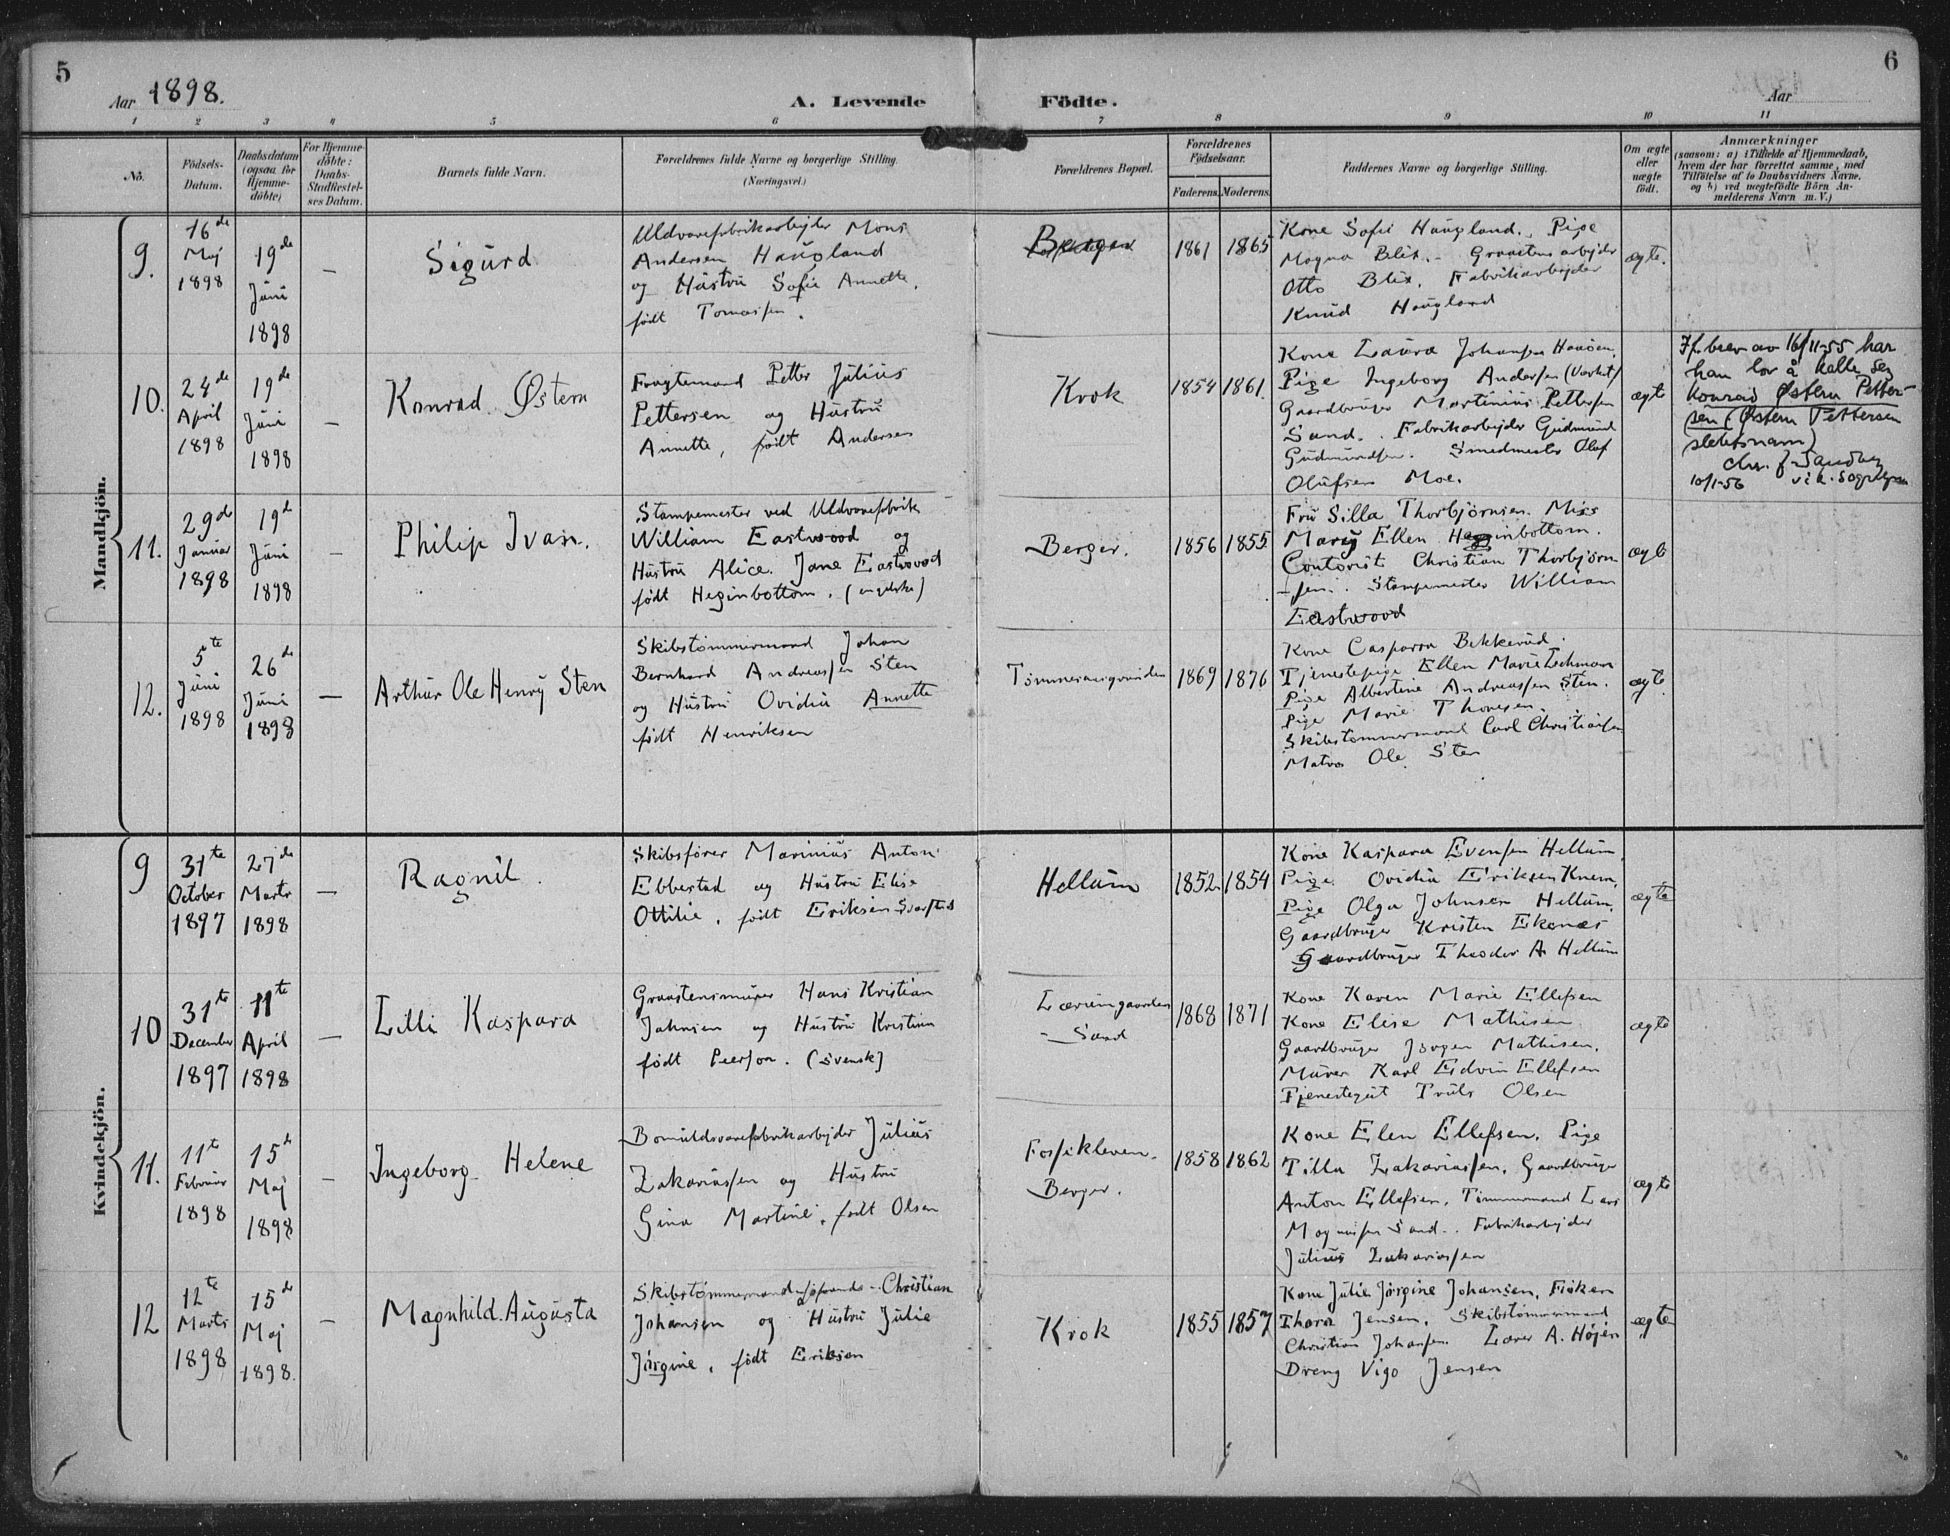 5
6
Aar 1898.
A. Levende
Födte.
Aar
1 2 3 4 5 6 7 8 9 10 11
No.
Födsels-
Datum.
Daabsdatum
(ogsaa for
Hjemme-
döbte)
For Hjemme-
döbte:
Daabs-
Stadfæstel-
ses Datum.
Barnets fulde Navn.
Forældrenes fulde Navne og borgerlige Stilling.
(Næringsvei.)
Forældrenes Bopæl.
Forældrenes
Födselsaar.
Faderens. Moderens.
Faddernes Navne og borgerlige Stilling.
Om ægte
eller
uægte
födt.
Anmærkninger
(saasom: a) i Tilfælde af Hjemmedaab,
hvem der har forrettet samme, med
Tilföielse af to Daabsvidners Navne.
og b) ved uægtefödte Börn An-
melderens Navn m. V.)
Mandkjön.
9.
16de
Maj
1898
19de
Juni
1898
–
Sigurd
Uldvarefabrikarbejder Mons
Andersen Haugland
og Hustru Sofie Annette,
født Tomassen.
Berger
1861
1865
Kone Sofie Haugland. Pige
Magna Blix. Graastensarbejder
Otto Blix. Fabrikarbejder
Knud Haugland
ægte.
10.
24de
April
1898
19de
Juni
1898
–
Konrad Østern
Fragtemand Petter Julius
Pettersen og Hustru
Annette, født Andersen
Krok
1854
1861
Kone Laura Johansen Haasen,
Pige Ingeborg Andersen
Gaardbruger Martinius Pettersen
Sand. Fabrikarbejder Gudmund
Gudmundsen. Smedmester Olaf
Olufsen Moe.
ægte
If. brev av 16/11-55 har
han lov å kalle seg
Konrad Østern Petter-
sen (Østern Pettersen
slektsnavn)
10/1-56
11.
29de
Januar
1898
19d
Juni
1898
–
Philip Ivan.
Stampemester ved Uldvarefabrik
William Eastwood og
Hustru Alice Jane Eastwood
født Heginbottom. (engelske)
Berger.
1856
1855
Fru Silla Thorbjørnsen. Miss
Mary Ellen Heginbottom.
Contorist Christian Thorbjørn
-sen. Stampemester William
Eastwood
ægte
12.
5te
Juni
1898
26de
Juni
1898
–
Arthur Ole Henry Sten
Skibstømmermand Johan
Bernhard Andreassen Sten
og Hustru Ovidia Annette
født Henriksen
1869
1876
Kone Casparra Bekkerud.
Tjenestepige Ellen Marie
Pige Albertine Andreassen Sten.
Pige Marie Thoresen.
Skibstømmermand Carl Christiansen
Matros Ole Sten
ægte
Kvindekjön.
9
31te
October
1897
27de
Marts
1898
–
Ragnil.
Skibsfører Marinius Anton
Ebbestad og Hustru Elise
Ottilie, født Eriksen
Hellum
1852
1854
Kone Kaspara Evensen Hellum,
Pige Ovidia Eriksen
Pige Olga Johnsen Hellum.
Gaardbruger Kristen Ekenæs
Gaardbruger Theodor A. Hellum
ægte
10
31te
December
1897
11te
April
1898
–
Lilli Kaspara
Graastensmurer Hans Kristian
Johnsen og Hustru Kristina
født Peerson. (Svensk)
Sand
1868
1871
Kone Karen Marie Ellefsen
Kone Elise Mathisen
Gaardbruger Jørgen Mathisen.
Murer Karl Edvin Ellefsen
Tjenestegut Truls Olsen
ægte
11.
11te
Februar
1898
15de
Maj
1898
–
Ingeborg Helene
Bomuldsvarefabrikarbejder Julius
Zakariassen og Hustru
Gina Martine, født Olsen
Fossekleven.
Berger.
1858
1862
Kone Elen Ellefsen, Pige
Tilla Zakariassen, Gaardbruger
Anton Ellefsen, Tømmermand Lars
Magnussen Sand. Fabrikarbejder
Julius Zakariassen
ægte
12
12te
Marts
1898
15de
Maj
1898.
–
Magnhild Augusta
Skibstømmermand Christian
Johansen og Hustru Julie
Jørgine, født Eriksen
Krok
1855
1857
Kone Julie Jørgine Johansen,
Thora Jensen, Skibstømmermand
Christian Johansen. Lærer A. Højer
Dreng Vigo Jensen
ægte